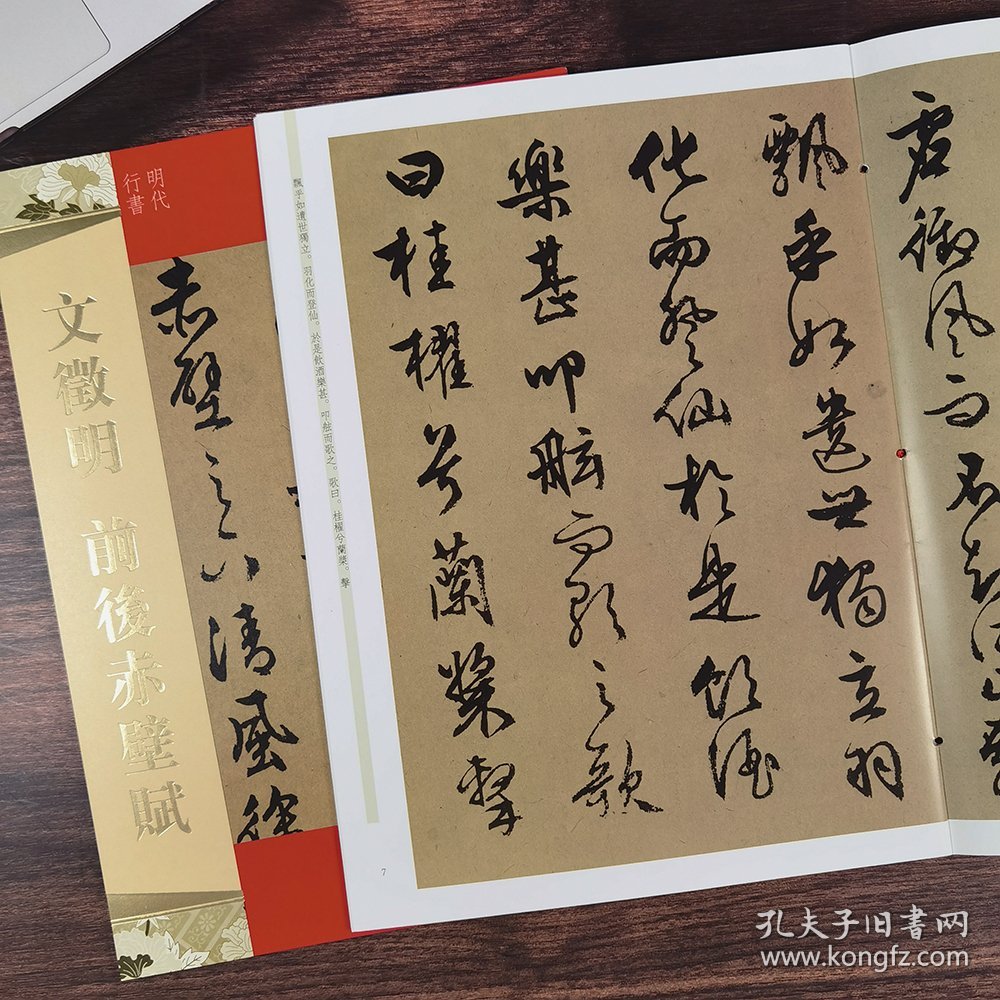 明代
行書
文徵明 前後赤壁賦
赤壁之下清風徐
虛御風而不知
飄乎如遺世獨立羽
化而登仙於是飲酒
樂甚叩舷而歌之歌
曰桂櫂兮蘭槳擊
飄乎如遺世獨立。羽化而登仙。於是飲酒樂甚。叩舷而歌之。歌曰。桂櫂兮蘭槳。擊
7
孔夫子旧书网
www.kongfz.com